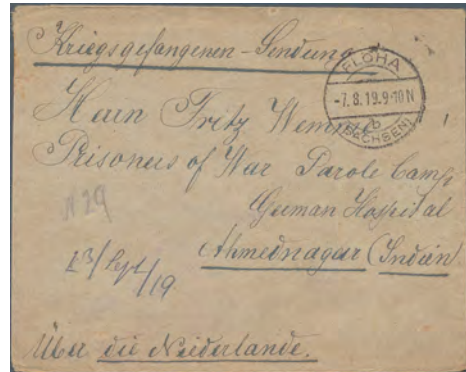 Kriegsgefangenen-Sendung
FLÖHA
-7.8.19.9-10N
b
(SACHSEN)
Herrn Fritz
Prisoners of War Parole Camp
German Hospital
Ahmednagar (Indien
N 29
13/Sept/19
Über die Niederlande.